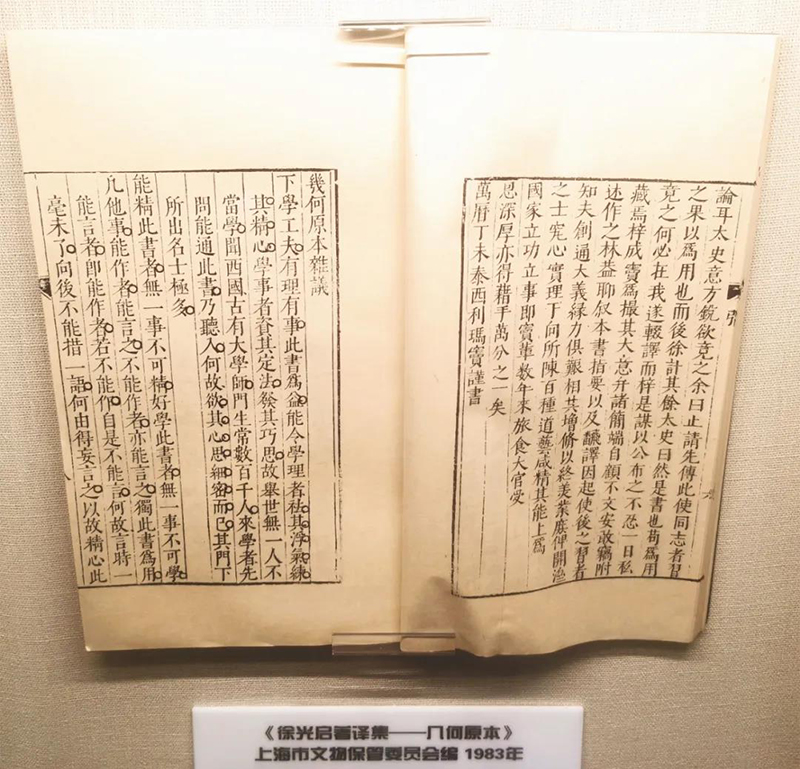 論耳太史意方銳欲竟之余曰止請先傳此使同志者習
之果以爲用也而後徐計其餘太史曰然是書也苟爲用
竟之何必在我遂輟譯而梓是謀以公布之不忍一日私
藏焉梓成竇爲撮其大意弁諸簡端自顧不文安敢竊附
述作之林葢聊叙本書指要以及飜譯因起使後之習者
知夫創通大義緣力俱艱相共增修以終美業庶俾開濟
之士究心實理于向所陳百種道藝咸精其能上爲
國家立功立事即竇輩數年來旅食大官受
恩深厚亦得藉手萬分之一矣
萬曆丁未泰西利瑪竇謹書
幾何原本雜議
下學工夫有理有事此書爲益能令學理者祛其浮氣練
其精心學事者資其定法發其巧思故舉世無一人不
當學聞西國古有大學師門生常數百千人來學者先
問能通此書乃聽入何故欲其心思細密而已其門下
所出名士極多
能精此書者無一事不可精好學此書者無一事不可學
凡他事能作者能言之不能作者亦能言之獨此書爲用
能言者卽能作者若不能作自是不能言何故言時一
毫未了向後不能措一語何由得妄言之以故精心此
《徐光启著译集——几何原本》
上海市文物保管委员会编 1983年